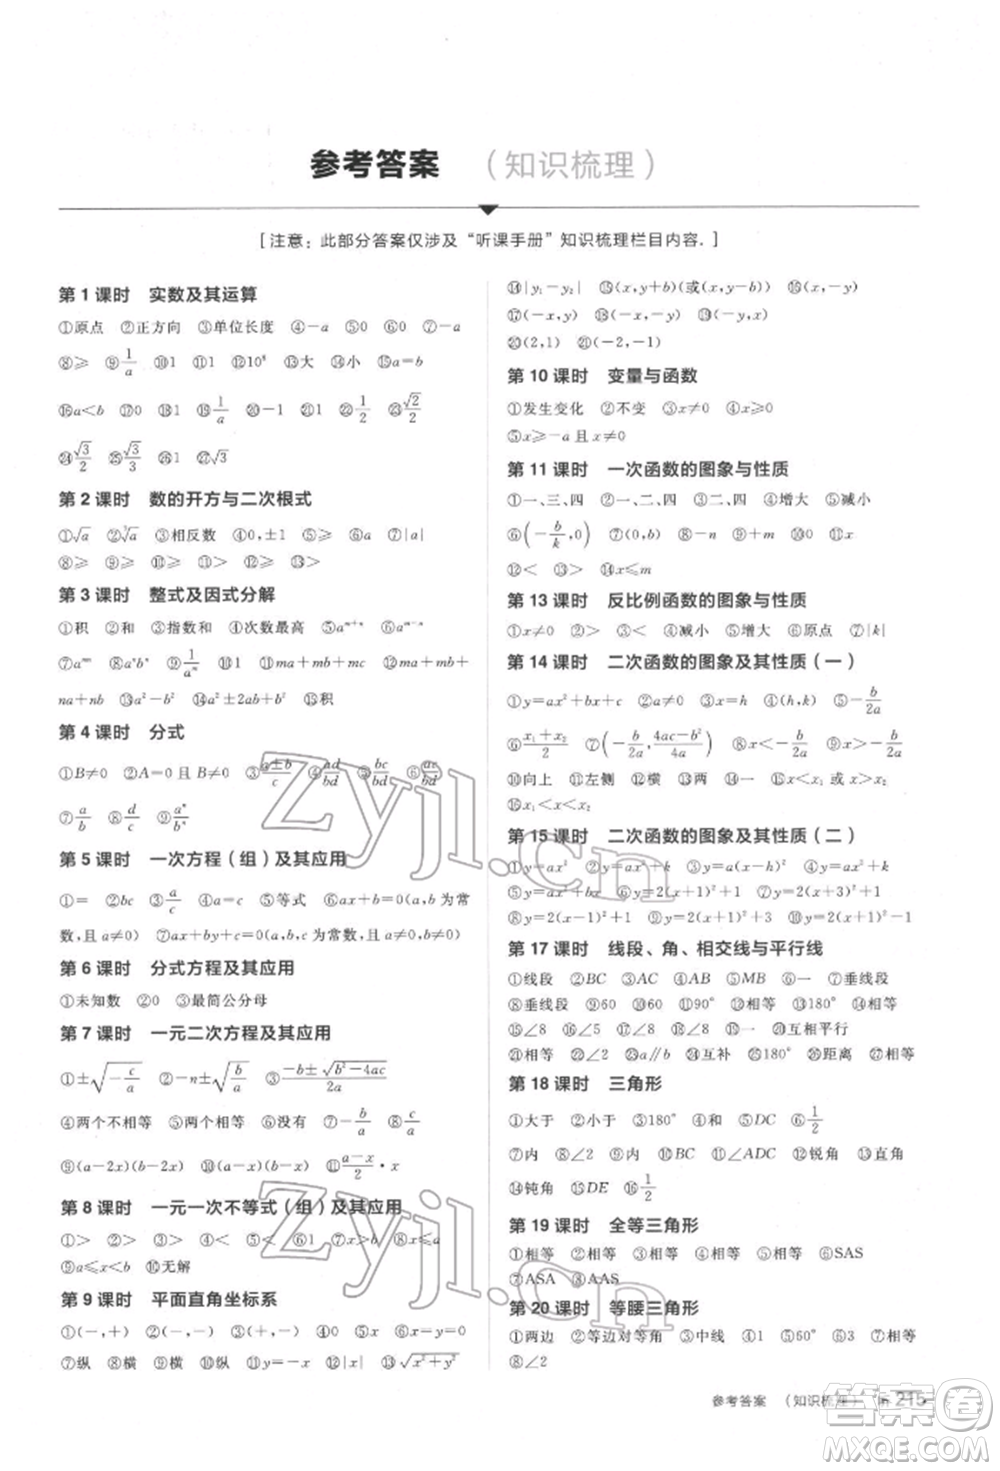 参考答案 （知识梳理）
[注意：此部分答案仅涉及“听课手册”知识梳理栏目内容．]
第 1 课时 实数及其运算
①原点 ②正方向 ③单位长度 ④－a ⑤0 ⑥0 ⑦－a
⑧≥ ⑨1/a ⑩1 ⑪1 ⑫10⁸ ⑬大 ⑭小 ⑮a=b
⑯a<b ⑰0 ⑱1 ⑲1/a ⑳－1 ㉑1 ㉒1/2 ㉓√2/2
㉔√3/2 ㉕√3/3 ㉖1 ㉗√3
第 2 课时 数的开方与二次根式
①√a ②³√a ③相反数 ④0,±1 ⑤≥ ⑥a ⑦|a|
⑧≥ ⑨≥ ⑩≥ ⑪> ⑫≥ ⑬>
第 3 课时 整式及因式分解
①积 ②和 ③指数和 ④次数最高 ⑤aᵐ⁺ⁿ ⑥aᵐ⁻ⁿ
⑦aᵐⁿ ⑧aⁿbⁿ ⑨1/aⁿ ⑩1 ⑪ma+mb+mc ⑫ma+mb+
na+nb ⑬a²－b² ⑭a²±2ab+b² ⑮积
第 4 课时 分式
①B≠0 ②A=0 且 B≠0 ③(a±b)/c ④ad/bd ⑤bc/bd ⑥ac/bd
⑦a/b ⑧d/c ⑨aⁿ/bⁿ
第 5 课时 一次方程（组）及其应用
①= ②bc ③a/c ④相等 ⑤等式 ⑥ax+b=0(a,b 为常
数,且 a≠0) ⑦ax+by+c=0(a,b,c 为常数,且 a≠0,b≠0)
第 6 课时 分式方程及其应用
①未知数 ②0 ③最简公分母
第 7 课时 一元二次方程及其应用
①±√(－c/a) ②－n±√(b/a) ③(－b±√(b²－4ac))/2a
④两个不相等 ⑤两个相等 ⑥没有 ⑦－b/a ⑧c/a
⑨(a－2x)(b－2x) ⑩(a－x)(b－x) ⑪(a－x)/2·x
第 8 课时 一元一次不等式（组）及其应用
①> ②> ③> ④< ⑤< ⑥1 ⑦x>b ⑧x<a
⑨a≤x<b ⑩无解
第 9 课时 平面直角坐标系
①(－,+) ②(－,－) ③(+,－) ④0 ⑤x ⑥x=y
⑦纵 ⑧横 ⑨横 ⑩纵 ⑪y=－x ⑫|x| ⑬√(x²+y²)
⑭|y₁－y₂| ⑮(x,y+b)(或(x,y－b)) ⑯(x,－y)
⑰(－x,y) ⑱(－x,－y) ⑲(－y,x)
⑳(2,1) ㉑(－2,－1)
第 10 课时 变量与函数
①发生变化 ②不变 ③x≠0 ④x≥0
⑤x≥－a 且 x≠0
第 11 课时 一次函数的图象与性质
①一、三、四 ②一、二、四 ③四 ④增大 ⑤减小
⑥(－b/k,0) ⑦(0,b) ⑧－n ⑨－m ⑩n ⑪x
⑫< ⑬> ⑭x≤m
第 13 课时 反比例函数的图象与性质
①x≠0 ②> ③< ④减小 ⑤增大 ⑥原点 ⑦|k|
第 14 课时 二次函数的图象及其性质（一）
①y=ax²+bx+c ②a>0 ③(h,k) ④(h,k) ⑤－b/2a
⑥(x₁+x₂)/2 ⑦(－b/2a,(4ac－b²)/4a) ⑧－b/2a ⑨－b/2a
⑩向上 ⑪左侧 ⑫横 ⑬两 ⑭一 ⑮x<x₁ 或 x>x₂
⑯x₁<x<x₂
第 15 课时 二次函数的图象及其性质（二）
①y=ax² ②y=ax²+k ③y=a(x－h)² ④y=ax²
⑤y=ax²+bx ⑥y=2(x+1)²+1 ⑦y=2x²+1
⑧y=2(x－1)²+1 ⑨y=2(x+1)²+3 ⑩y=2(x+1)²－1
第 17 课时 线段、角、相交线与平行线
①线段 ②BC ③AC ④AB ⑤MB ⑥一 ⑦垂线段
⑧垂线段 ⑨60 ⑩60 ⑪90° ⑫相等 ⑬180° ⑭相等
⑮∠8 ⑯∠8 ⑰∠8 ⑱90° ⑲一 ⑳互相平行
㉑相等 ㉒∠2 ㉓a∥b ㉔互补 ㉕180° ㉖距离 ㉗相等
第 18 课时 三角形
①大于 ②小于 ③180° ④和 ⑤DC ⑥1/2
⑦内 ⑧外 ⑨∠2 ⑩BC ⑪∠ADC ⑫锐角 ⑬直角
⑭钝角 ⑮DE ⑯1/2
第 19 课时 全等三角形
①相等 ②相等 ③相等 ④相等 ⑤相等 ⑥SAS
⑦ASA ⑧AAS
第 20 课时 等腰三角形
①两边 ②等边对等角 ③中线 ④1 ⑤相等 ⑥60° ⑦3
⑧∠2
参考答案 （知识梳理） 215
zyjl.cn
zyjl.cn
答案圈
MXQE.COM